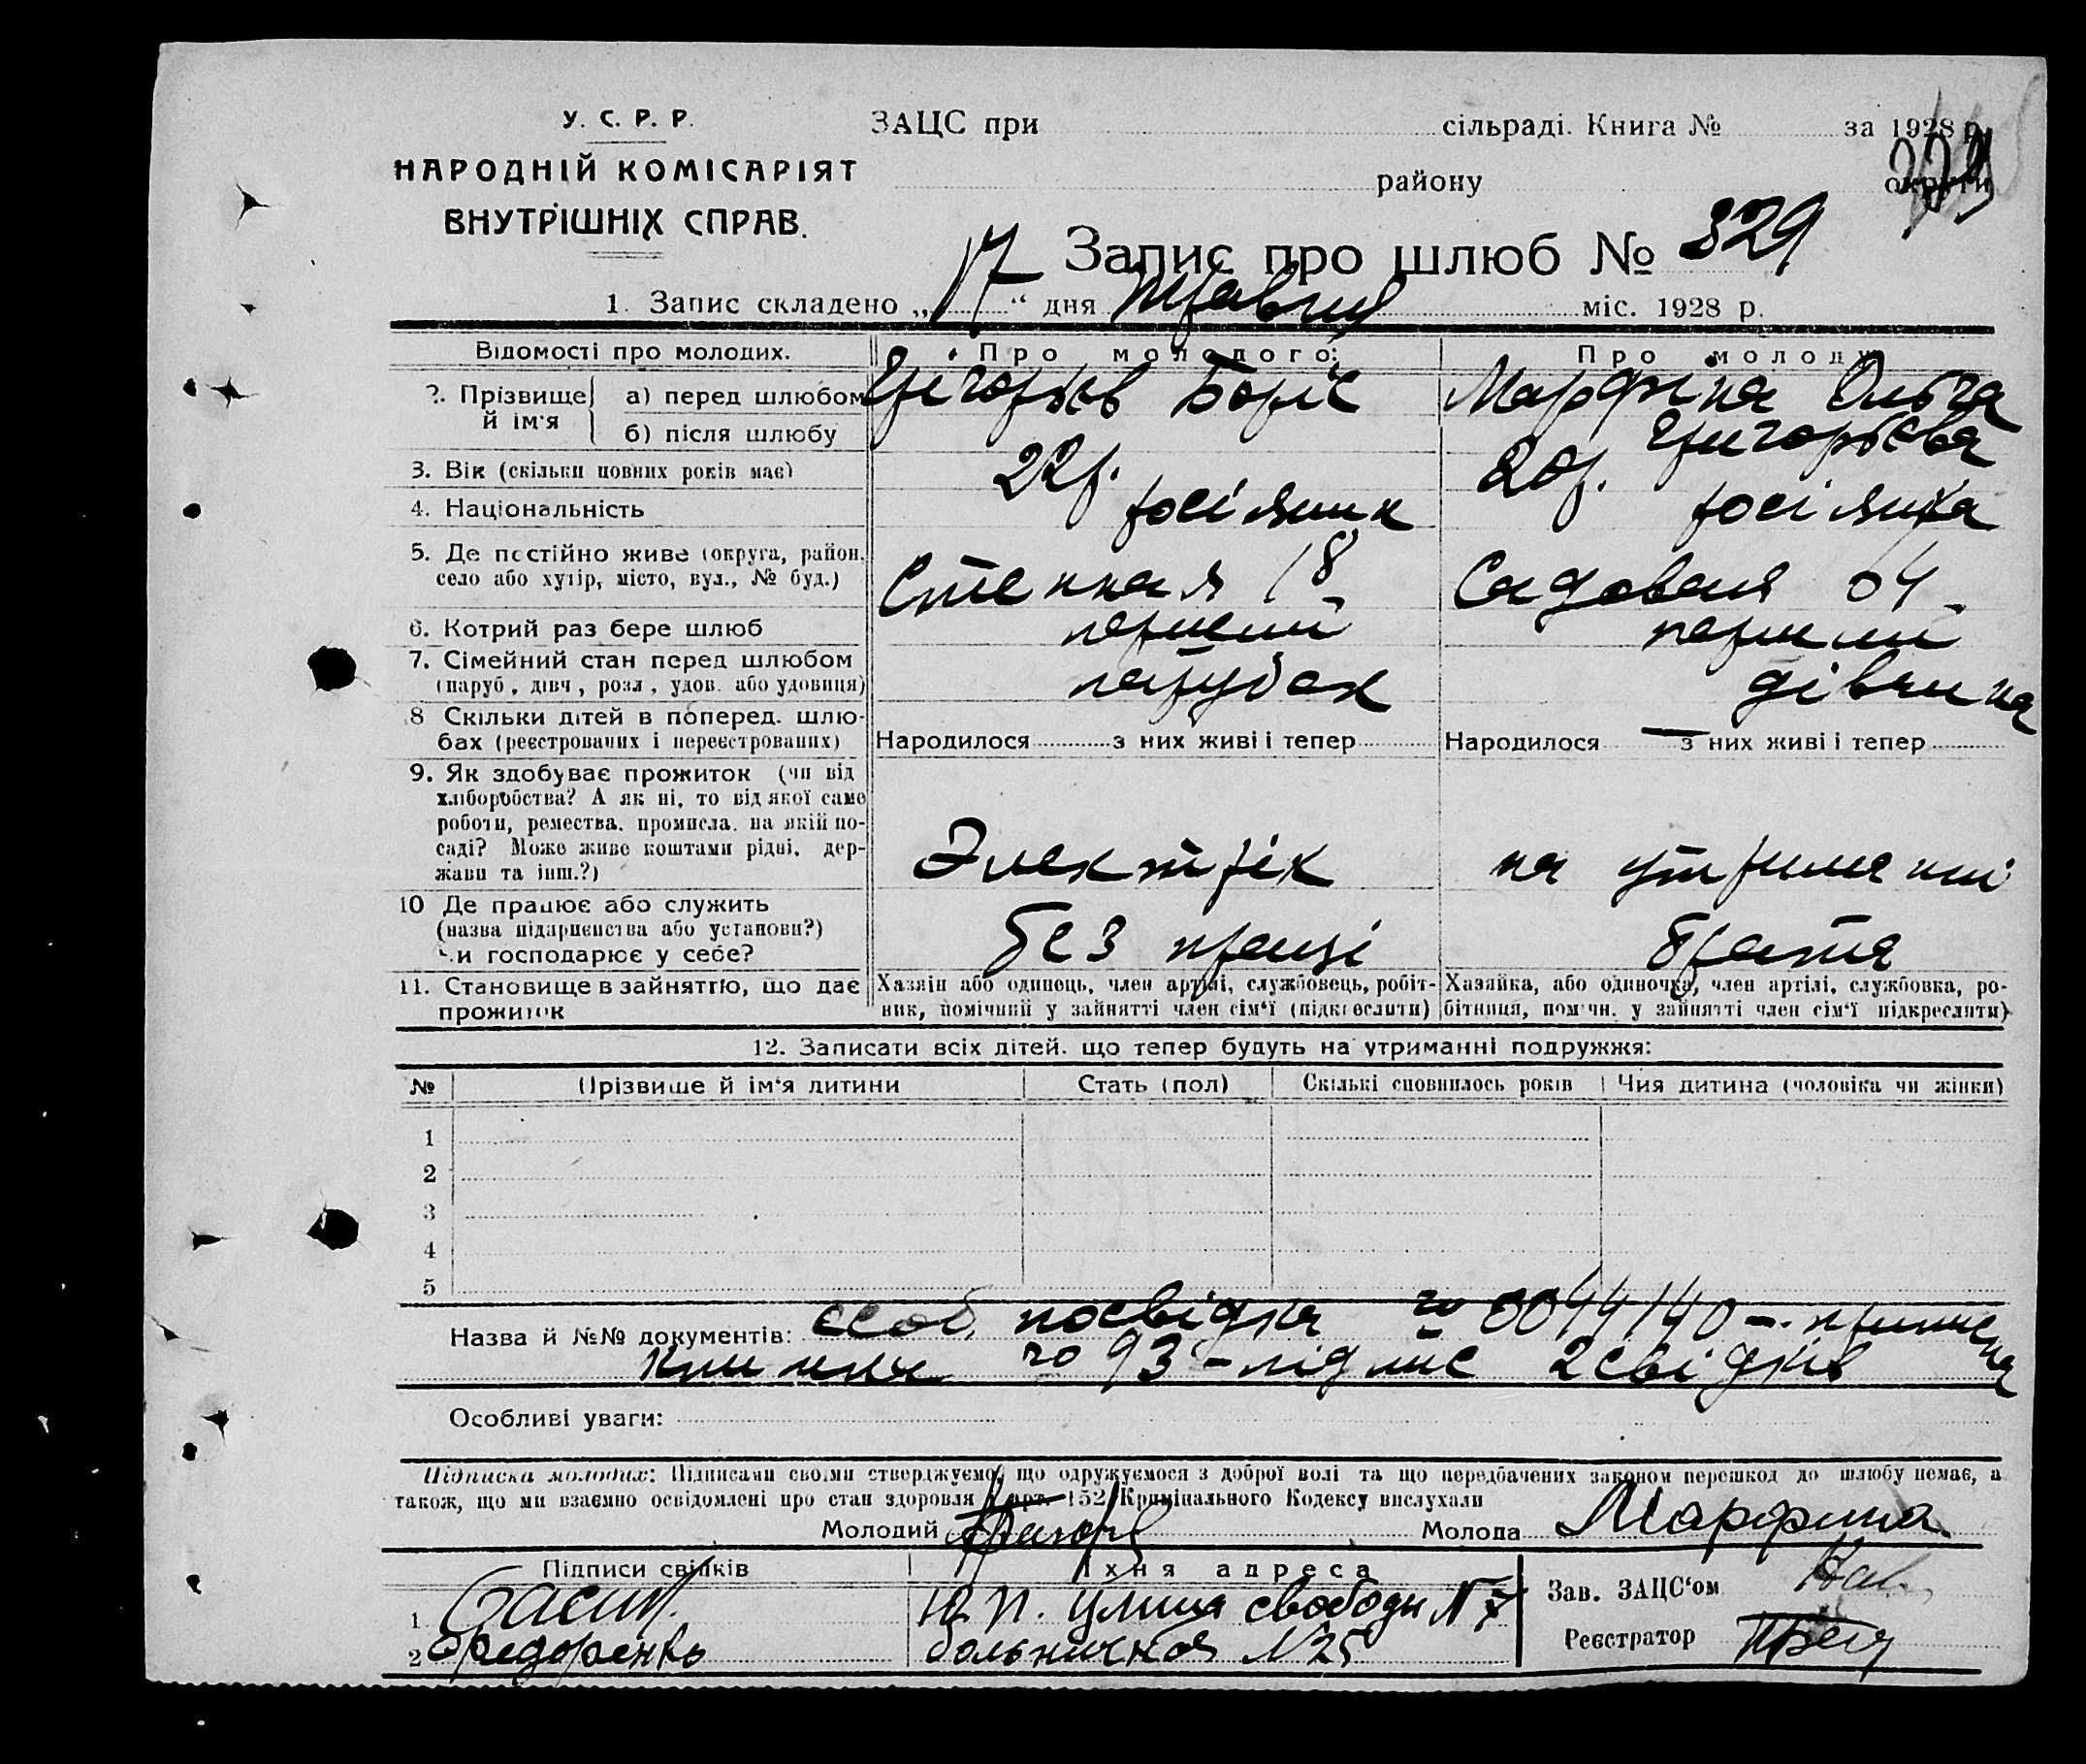 У. С. Р. Р.
НАРОДНІЙ КОМІСАРІЯТ
ВНУТРІШНІХ СПРАВ.
ЗАЦС при сільраді. Книга № за 1928 р.
району округи
Запис про шлюб № 329
1. Запис складено „17“ дня травня міс. 1928 р.
Відомості про молодих. Про молодого: Про молоду
2. Прізвище й ім'я а) перед шлюбом Григорьєв Боріс Марфіна Ольга
б) після шлюбу Григорьєва
3. Вік (скільки повних років має) 22 р. 20 р.
4. Національність росіянин росіянка
5. Де постійно живе (округа, район, Степная 18 Садовая 64
село або хутір, місто, вул., № буд.)
6. Котрий раз бере шлюб перший перший
7. Сімейний стан перед шлюбом парубок дівчина
(паруб, дівч, розл, удов. або удовиця)
8 Скільки дітей в поперед. шлю-
бах (реєстрованих і нереєстрованих) Народилося з них живі і тепер Народилося — з них живі і тепер
9. Як здобуває прожиток (чи від
хліборобства? А як ні, то від якої саме
роботи, ремества, промисла, на якій по-
саді? Може живе коштами рідні, дер- Электрік на утриманні
жави та інш.?)
10 Де працює або служить
(назва підприємства або установи?) без праці брата
Чи господарює у себе?
11. Становище в зайняттю, що дає Хазяїн або одинець, член артілі, службовець, робіт- Хазяйка, або одиночка, член артілі, службовка, ро-
прожиток ник, помічний у зайнятті член сім'ї (підкреслити) бітниця, помічн. у зайнятті член сім'ї підкреслити)
12. Записати всіх дітей, що тепер будуть на утриманні подружжя:
№ Прізвище й ім'я дитини Стать (пол) Скількі сповнилось років Чия дитина (чоловіка чи жінки)
1
2
3
4
5
Назва й №№ документів: особ. посвідка
93 – підпис 2 свідків
Особливі уваги:
Підписка молодих: Підписами своїми стверджуємо, що одружуємося з доброї волі та що передбачених законом перешкод до шлюбу немає, а
також, що ми взаємно освідомлені про стан здоровля й арт. 152 Кримінального Кодексу вислухали
Молодий Молода Марфина
Підписи свідків Їхня адреса
1 улица свободи N 7 Зав. ЗАЦС'ом
2 Федоренко больничная N 25 Реєстратор